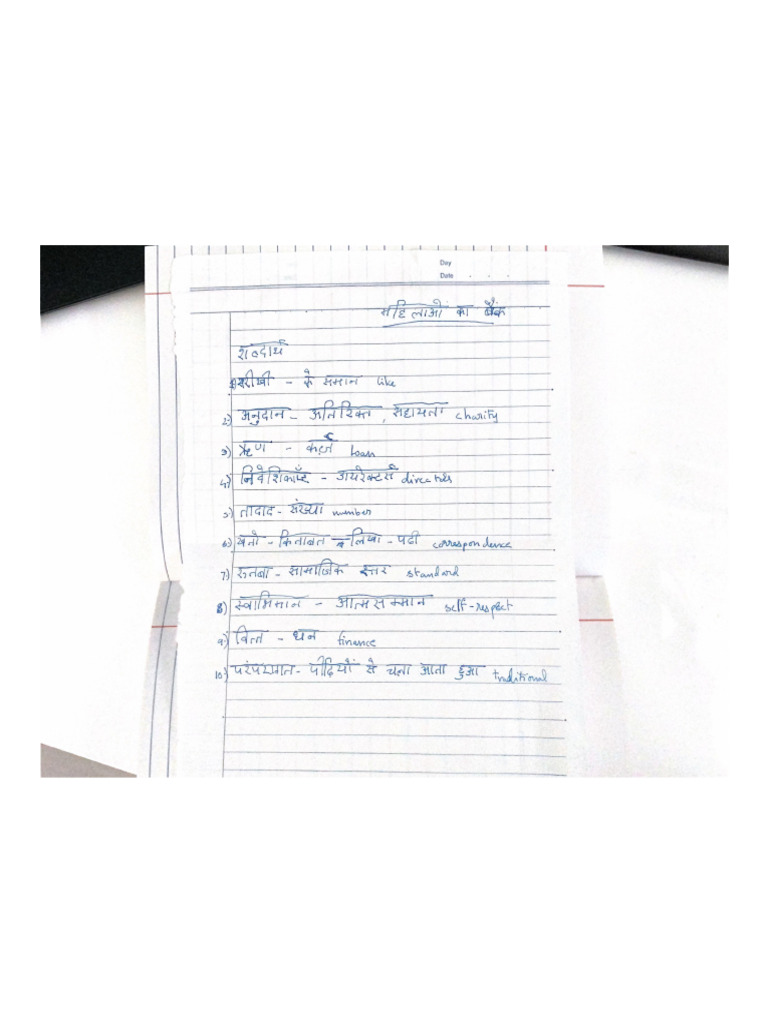 Day
Date
महिलाओं का बैंक
शब्दार्थ
1) सरीखी - के समान like
2) अनुदान - अतिरिक्त, सहायता charity
3) ऋण - कर्ज loan
4) निवेशिकाएँ - डायरेक्टर्स directors
5) तादाद - संख्या number
6) खतो - किताबत - लिखा - पढ़ी correspondence
7) रुतबा - सामाजिक स्तर standard
8) स्वाभिमान - आत्मसम्मान self-respect
9) वित्त - धन finance
10) परंपरागत - पीढ़ियों से चला आता हुआ traditional